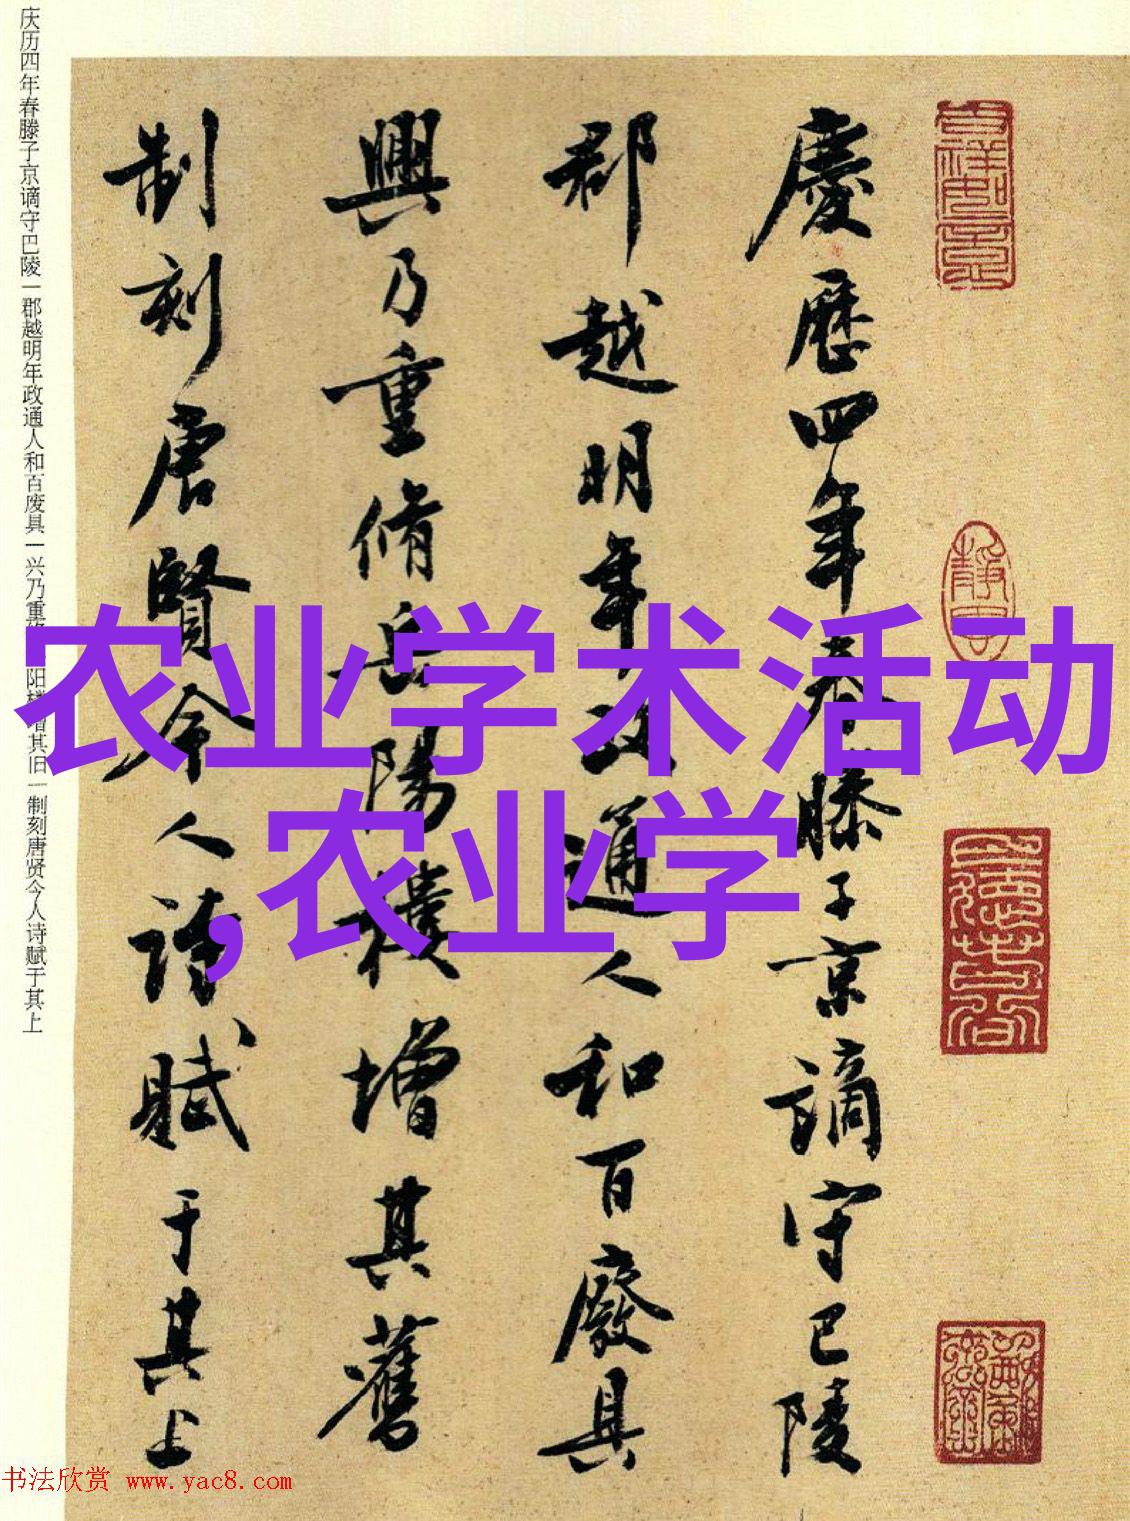 庆历四年春滕子京谪守巴陵一郡越明年政通人和百废具一兴乃重
阳楼增其旧一制刻唐贤今人诗赋于其上
慶歷四年春滕子京謫守巴陵
郡越明年政通人和百廢具
興乃重脩岳陽樓增其舊
制刻唐賢今人詩賦于其上
农业学术活动
,农业学
书法欣赏 www.yac8.com